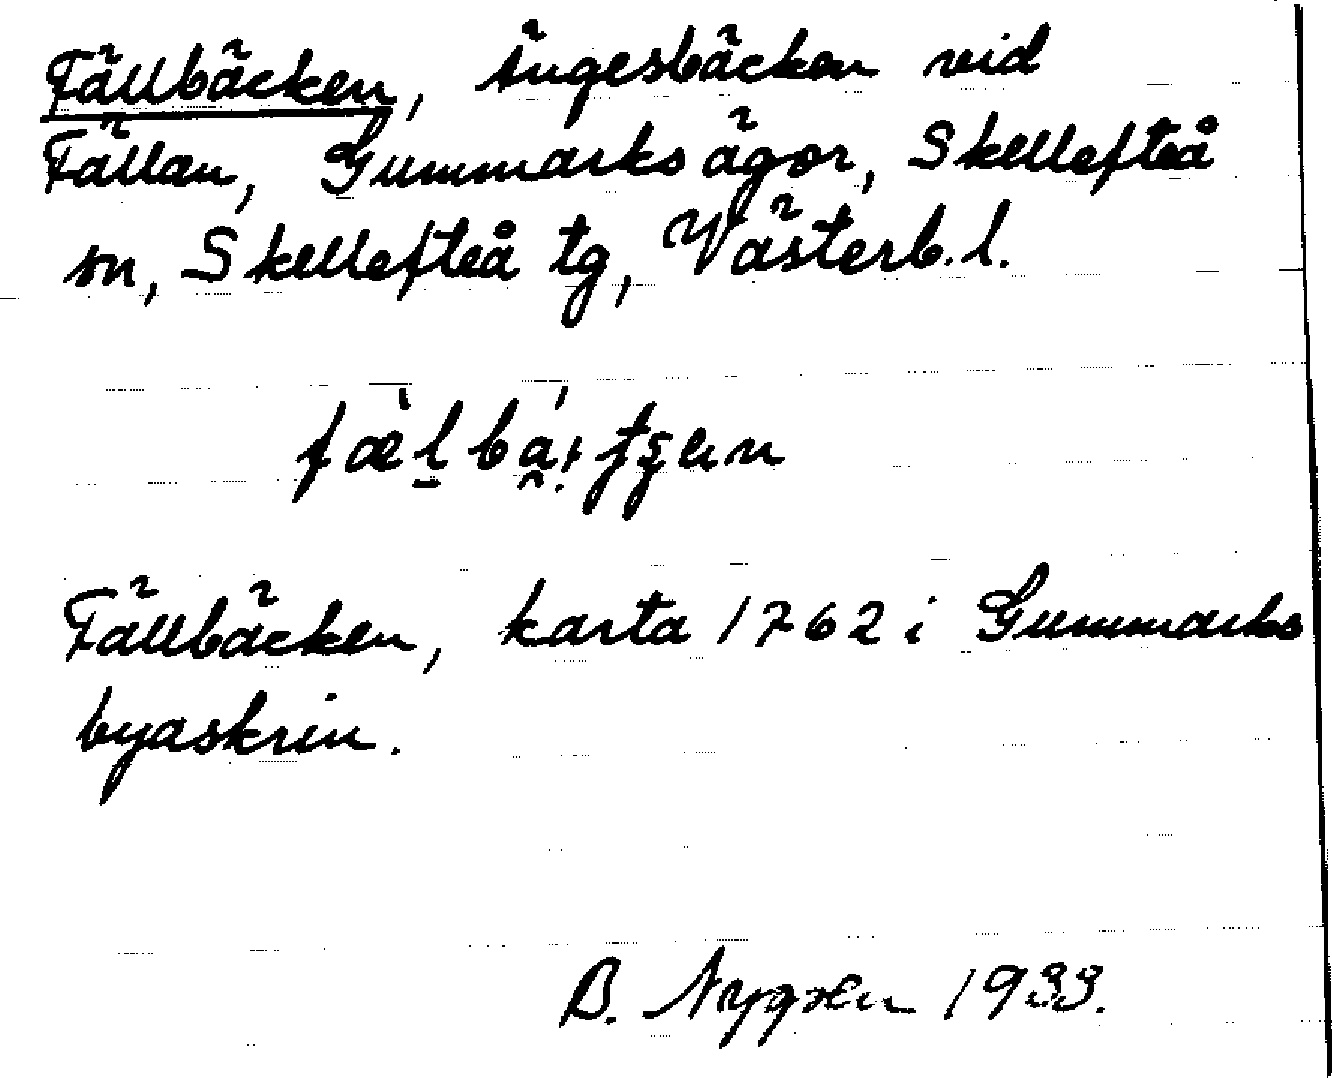 Fällbäcken, Ingesbäcken vid
Fällan, Gummarks ägor, Skellefteå
sn, Skellefteå tg, Västerb.l.
Fällbäcken, karta 1762 i Gummarks
byaskrin.
B. Nygren 1933.